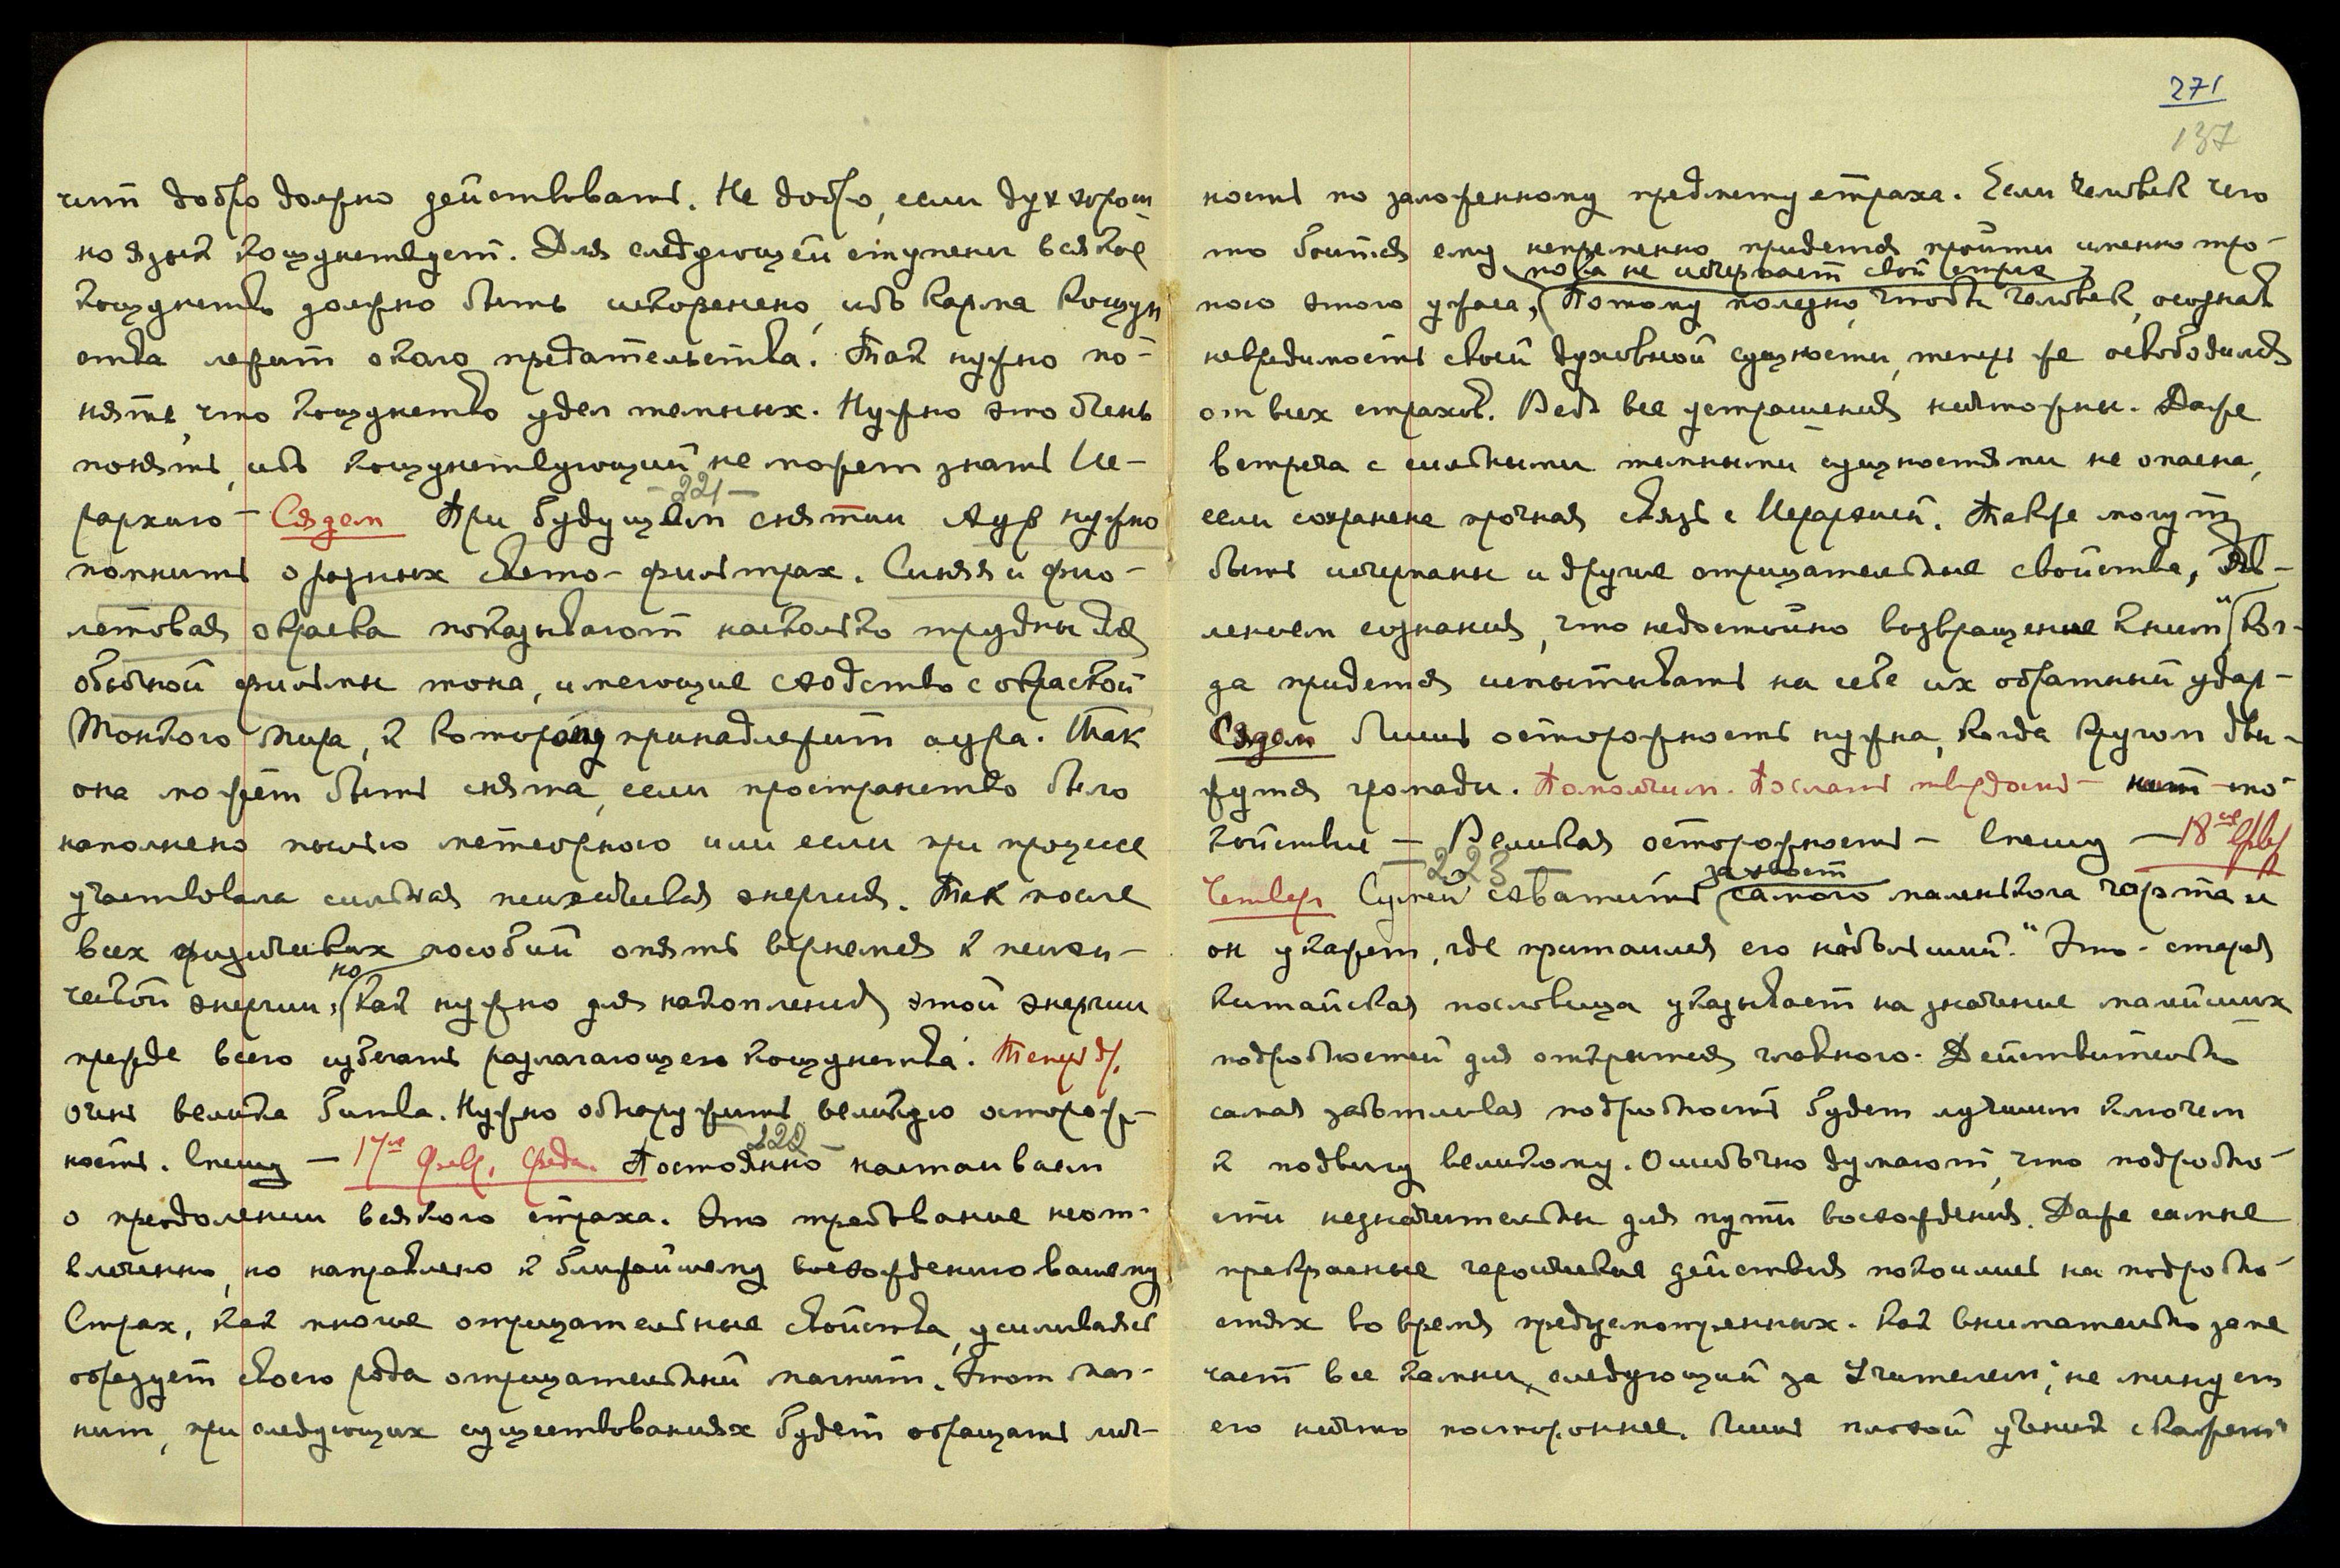 271
137
чит добро должно действовать. Не добро, если дух хорош
но язык кощунствует. Для следующей ступени всякое
кощунство должно быть искоренено, ибо карма кощун
ства лежит около предательства. Так нужно по-
нять, что кощунство удел темных. Нужно это очень
понять, ибо кощунствующий не может знать Ие-
рархию – Сядем
– 221 –
При будущем снятии Аур нужно
помнить о разных свето-фильтрах. Синяя и фио-
летовая окраска показывают насколько трудны для
обычной фильмы тона, имеющие сходство с окраской
Тонкого Мира, к которому принадлежит аура. Так
она может быть снята, если пространство было
наполнено пылью метеорного или если при процессе
участвовала сильная психическая энергия. Так после
всех физических пособий опять вернемся к психи-
ческой энергии, но как нужно для накопления этой энергии
прежде всего избегать разлагающего кощунства. Теперь др.
очень велика битва. Нужно обнаружить великую осторож-
ность. Спешу – 17ое Февр. Среда.
222 –
Постоянно настаиваем
о преодолении всякого страха. Это требование неот-
влеченно, но направлено к ближайшему восхождению вашему
Страх, как многие отрицательные свойства, усиливаясь
образует своего рода отрицательный магнит. Этот маг-
нит, при следующих существованиях будет обращать лич-
ность по заложенному предмету страха. Если человек чего
то боится ему непременно придется пройти именно тро-
пою этого ужаса, пока не исчерпает свой страх
Потому полезно, чтобы человек, осознав
невредимость своей духовной сущности, теперь же освободился
от всех страхов. Ведь все устрашения ничтожны. Даже
встреча с сильными темными сущностями не опасна,
если сохранена прочная связь с Иерархией. Также могут
быть исчерпаны и другие отрицательные свойства, Яв-
лением сознания, что недостойно возвращение к ним, ког-
да придется испытывать на себе их обратный удар –
Сядем Лишь осторожность нужна, когда кругом дви-
жутся громады. Помолчим. Послать твердость – нит – спо-
койствие – Великая осторожность – Спешу – 18ое Февр
Четверг
– 223 –
Сумей схватить за хвост самого маленького чорта и
он укажет, где притаился его набольший." Это – старая
китайская пословица указывает на значение малейших
подробностей для открытия главного. Действительно
самая заботливая подробность будет лучшим ключем
к подвигу великому. Ошибочно думают, что подробно-
сти незначительны для пути восхождения. Даже самые
прекрасные героические действия покоились на подробно-
стях во время предусмотренных. Как внимательно заме
чает все камни, следующий за Учителем; не минует
его ничто постороннее. Лишь плохой ученик скажет: